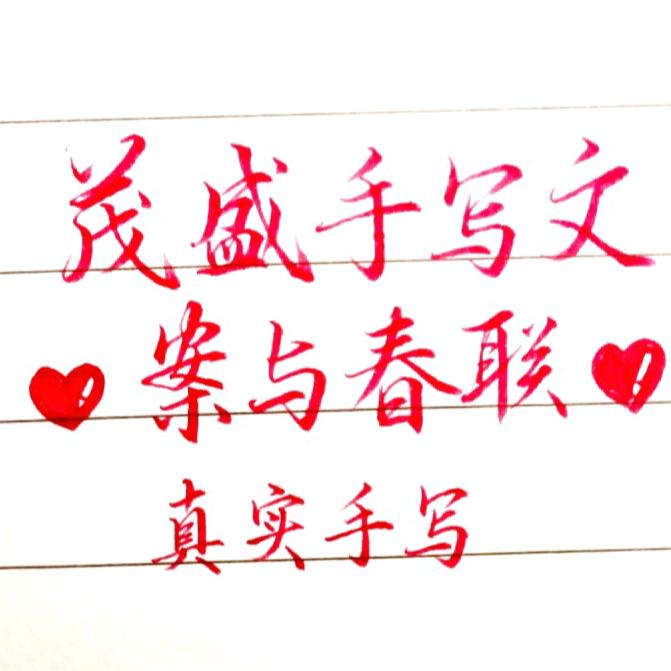 茂盛手写文
案与春联
真实手写